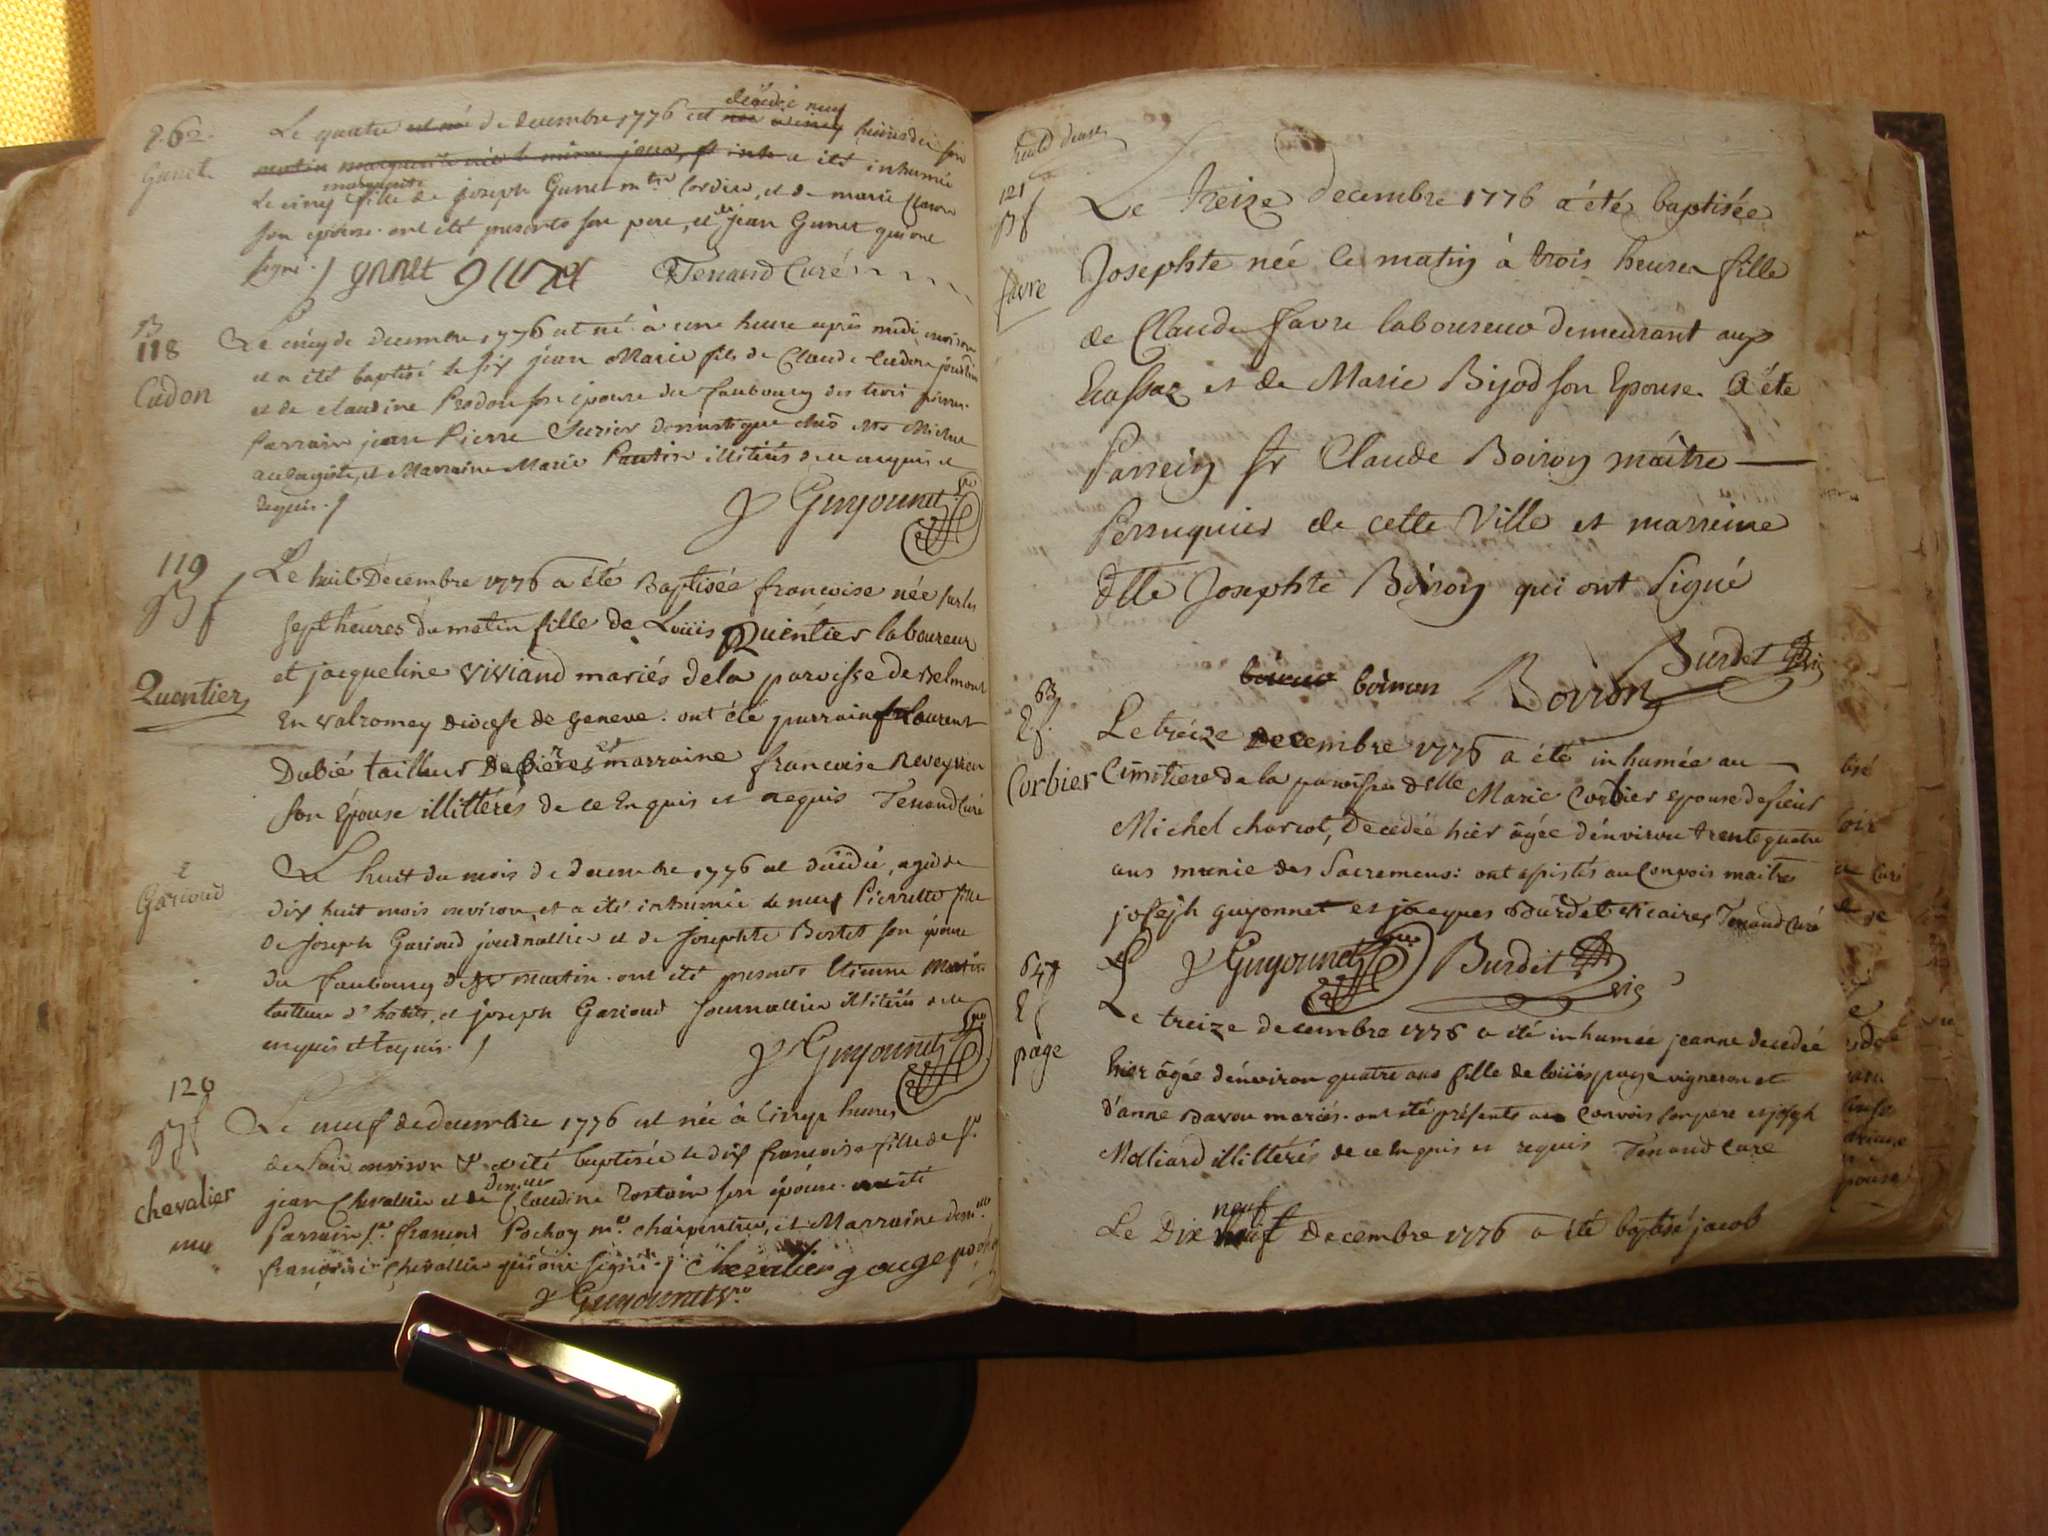 E. 62.
Gunet
Le quatre est né de decembre 1776 est décédée neuf heures du soir
matin marguerite née le même jour, et a été inhumée
le cinq marguerite fille de joseph Gunet mtre Cordier, et de marie
son epouse. ont été presents son pere, et de jean Gunet qui ont
signé. / gunet gunet Tenaud Curé
B
118
Cudon
Le cinq de decembre 1776 est né à une heure après midi environ
et a été baptisé le six jean Marie fils de Claude Cudon
et de claudine Prodon son épouse du faubourg des trois pierres.
Parrain jean Pierre domestique chés Mr Michel
et Marraine Marie Pautin illitérés de ce enquis et
requis. /
Guyonnet
119
B f
Quentier
Le huit Decembre 1776 a été Baptisée francoise née sur les
sept heures du matin fille de Loüis Quéntier laboureur
et jacqueline viviand mariés de la paroisse de Belmont
En valromey diocese de Geneve. ont été parrain Laurent
Dubié tailleur et marraine francoise Reveyron
son Épouse illittérés de ce Enquis et requis Tenaud Curé
E
Garioud
Le huit du mois de decembre 1776 est décédée, agée de
dix huit mois environ, et a été inhumée le neuf Pierrette fille
de Joseph Garioud journallier et de josephte Bertet son épouse
du faubourg de st martin. ont été presents Etienne
tailleur d'habits, et joseph Garioud Journallier illitérés de ce
enquis et requis. /
Guyonnet
120
B f
Chevalier
Le neuf de decembre 1776 est née à Cinq heures
du soir environ & a été baptisée le dix francoise fille de Sr
jean Chevallier et de demlle Claudine Rostain son épouse. a été
Parrain Sr. francois Pochoy me. charpentier, et Marraine demlle
francoise Chevallier qui ont signé. / Chevalier gouge
Guyonnet
121
B f
favre
Le treize decembre 1776 a été baptisée
Josephte née le matin à trois heures fille
de Claude favre laboureur demeurant aux
Ecassaz et de Marie Bijod son Epouse. a été
Parrein Sr Claude Boiron maître
Perruquier de cette Ville et marreine
Dlle Josephte Boiron qui ont Signé
boiron Boiron Burdet vic
63
E f.
Corbier
Le treize decembre 1776 a été inhumée au
Cimitiere de la paroisse delle Marie Corbier epouse de sieur
Michel charcot, Decedée hier âgée d'énviron trente quatre
ans munie des Sacremens: ont assistés au Convois maitres
joseph guyonnet et jacques Burdet vicaires Tenaud Curé
Guyonnet Burdet vic
64
E f
page
Le treize decembre 1776 a été inhumée jeanne decedée
hier âgée d'énviron quatre ans fille de loüis page vigneron et
d'anne Davou mariés. ont été présents au Convois son pere et joseph
Molliard illittérés de ce Enquis et requis Tenaud Curé
Le Dix neuf Decembre 1776 a été baptisé jacob